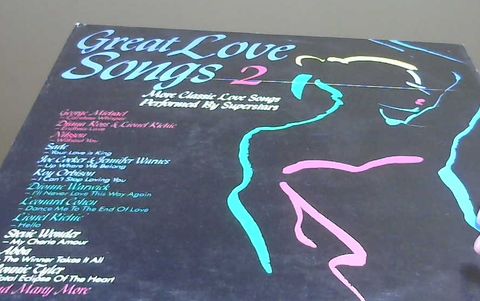 Great Love
Songs 2
More Classic Love Songs
Performed By Superstars
George Michael
– Careless Whisper
Diana Ross & Lionel Richie
– Endless Love
Nilsson
– Without You
Sade
– Your Love is King
Joe Cocker & Jennifer Warnes
– Up Where We Belong
Roy Orbison
– I Can't Stop Loving You
Dionne Warwick
– I'll Never Love This Way Again
Leonard Cohen
– Dance Me To The End Of Love
Lionel Richie
– Hello
Stevie Wonder
– My Cherie Amour
Abba
– The Winner Takes It All
Bonnie Tyler
Total Eclipse Of The Heart
And Many More